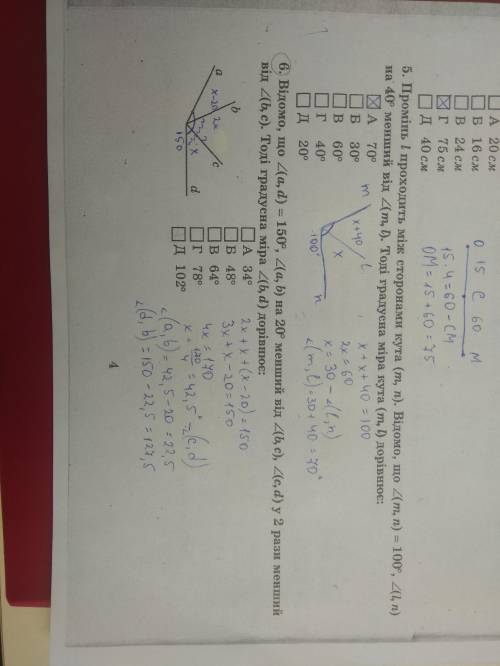 А 20 см
Б 16 см
В 24 см
Г 75 см
Д 40 см
O 15 C 60 M
15·4=60-CM
OM=15+60=75
5. Промінь l проходить між сторонами кута (m, n). Відомо, що ∠(m, n) = 100°, ∠(l, n)
на 40° менший від ∠(m, l). Тоді градусна міра кута (m, l) дорівнює:
А 70°
Б 30°
В 60°
Г 40°
Д 20°
m
x+40
l
x
100°
n
x+x+40=100
2x=60
x=30-∠(l,n)
∠(m,l)=30+40=70°
6. Відомо, що ∠(a, d) = 150°, ∠(a, b) на 20° менший від ∠(b, c), ∠(c, d) у 2 рази менший
від ∠(b, c). Тоді градусна міра ∠(b, d) дорівнює:
a
x-20
b
2x
c
x
150
d
А 34°
Б 48°
В 64°
Г 78°
Д 102°
2x+x+(x-20)=150
3x+x-20=150
4x=170
x=170/4=42,5°-∠(c,d)
∠(a,b)=42,5-20=22,5
∠(d,b)=150-22,5=127,5
4